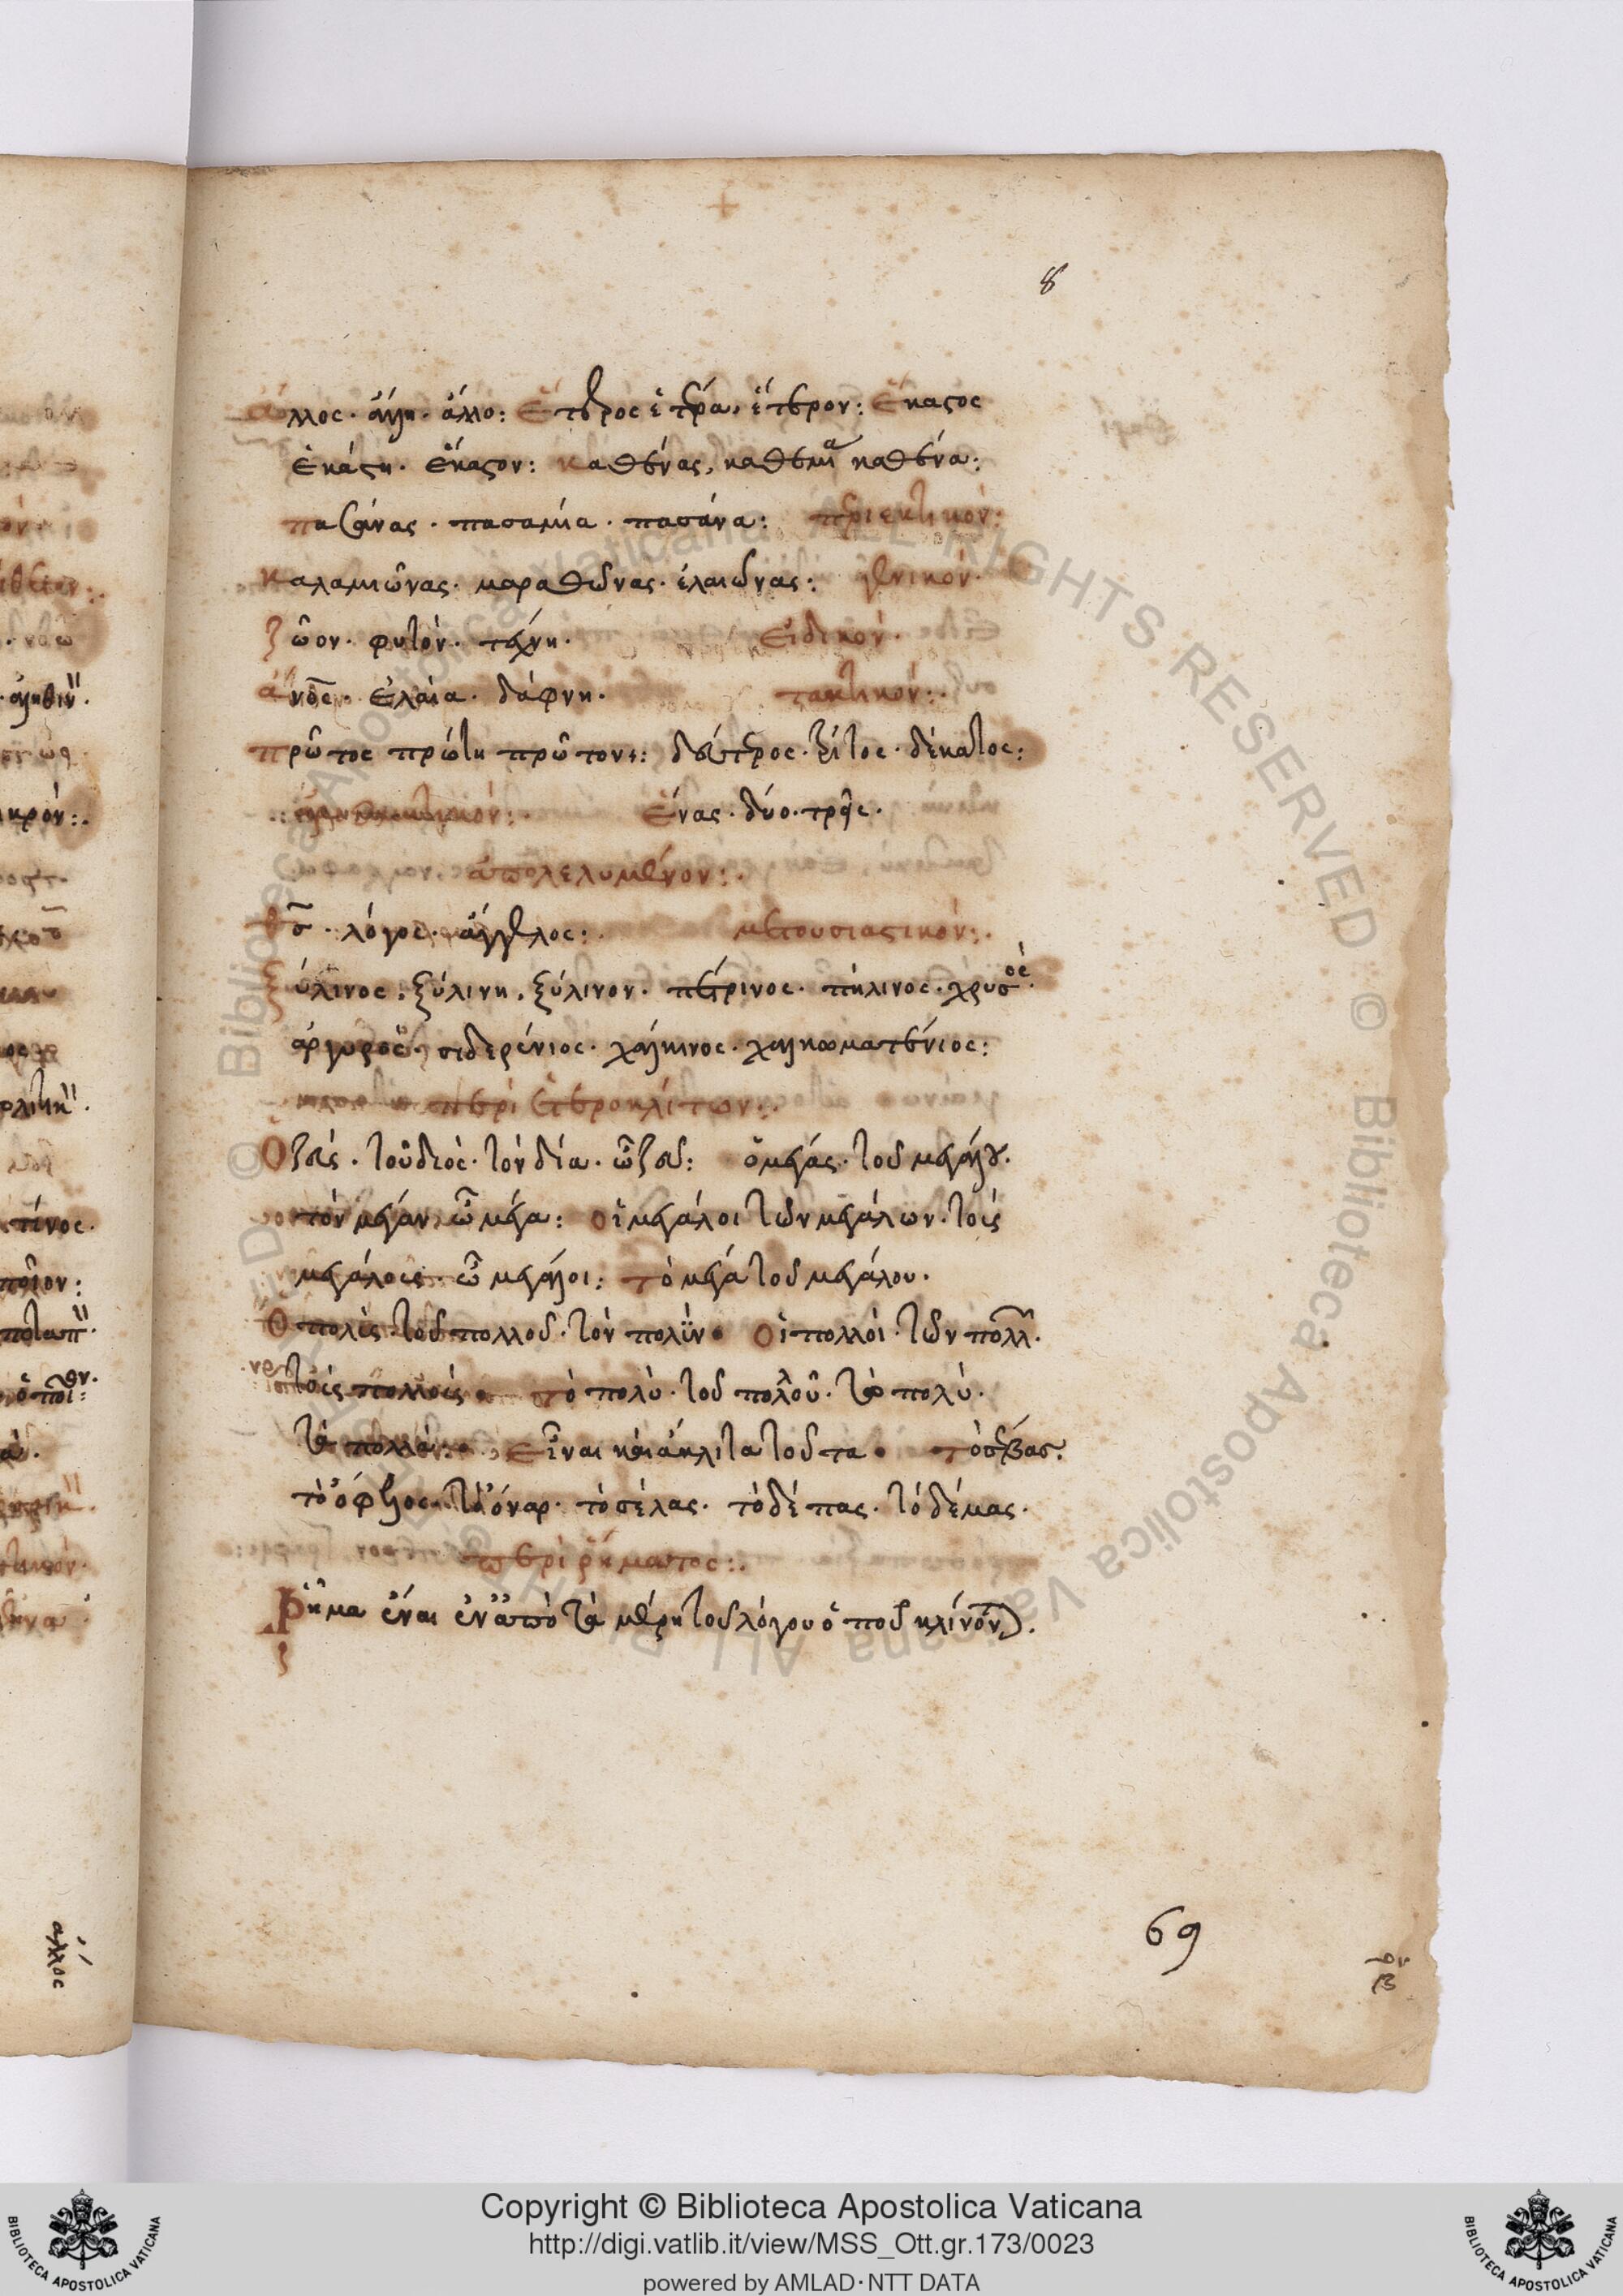 8
ἄλλος· ἄλλη· ἄλλο: ἕτερος ἑτέρα, ἕτερον: ἕκαστος
ἑκάστη· ἕκαστον: καθένας, καθεμία καθένα:
πασάνας· πασαμία· πασάνα: περιεκτικόν:
καλαμιῶνας· μαραθῶνας· ἐλαιῶνας: γενικόν·
ζῶον· φυτὸν· τέχνη· εἰδικόν·
ἄνος· ἐλαία· δάφνη· τακτικόν:
πρῶτος πρώτη πρῶτον: δεύτερος· τρίτος· δέκατος:
ἀριθμητικόν: ἕνας· δύο· τρεῖς·
ἀπολελυμένον:
θς· λόγος· ἄγγελος: μετουσιαστικόν:
ξύλινος, ξύλινη, ξύλινον· πέτρινος· πήλινος· χρυσὸς·
ἀργυρὸς· σιδερένιος· χάλκινος· χαλκωματένιος:
περὶ ἑτεροκλίτων:
Ὁ ζεὺς· τοῦ διὸς· τὸν δία· ὦ ζεῦ: ὁ μέγας· τοῦ μεγάλου·
τὸν μέγαν, ὦ μέγα: οἱ μεγάλοι τῶν μεγάλων· τοὺς
μεγάλους· ὦ μεγάλοι: τὸ μέγα τοῦ μεγάλου·
Ὁ πολὺς τοῦ πολλοῦ· τὸν πολὺν οἱ πολλοί· τῶν πολλῶν·
τοὺς πολλοὺς τὸ πολὺ· τοῦ πολλοῦ· τὸ πολύ·
τὰ πολλὰ: εἶναι καὶ ἄκλιτα τοῦτα τὸ σέβας·
τὸ ὄφελος· τὸ ὄναρ· τὸ σέλας· τὸ δέπας· τὸ δέμας·
περὶ ῥήματος:
Ῥῆμα ἔναι ἐν ἀπὸ τὰ μέρη τοῦ λόγου ὁποῦ κλίνονται·
69
ἄλλος
Copyright © Biblioteca Apostolica Vaticana
http://digi.vatlib.it/view/MSS_Ott.gr.173/0023
powered by AMLAD·NTT DATA
BIBLIOTECA APOSTOLICA VATICANA
BIBLIOTECA APOSTOLICA VATICANA